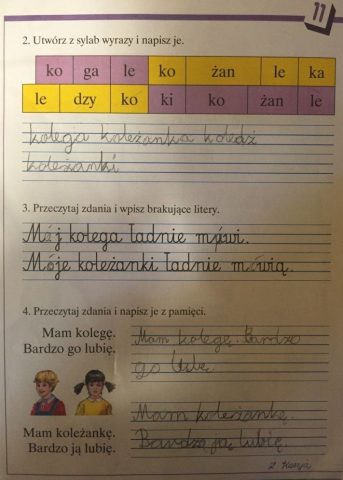 11
2. Utwórz z sylab wyrazy i napisz je.
ko ga le ko żan le ka
le dzy ko ki ko żan le
kolega koleżanka
koleżanki
3. Przeczytaj zdania i wpisz brakujące litery.
Mój kolega ładnie mówi.
Moje koleżanki ładnie mówią.
4. Przeczytaj zdania i napisz je z pamięci.
Mam kolegę.
Bardzo go lubię.
Mam kolegę. Bardzo
go lubię
Mam koleżankę.
Bardzo ją lubię.
Mam koleżankę
Bardzo ją lubię.